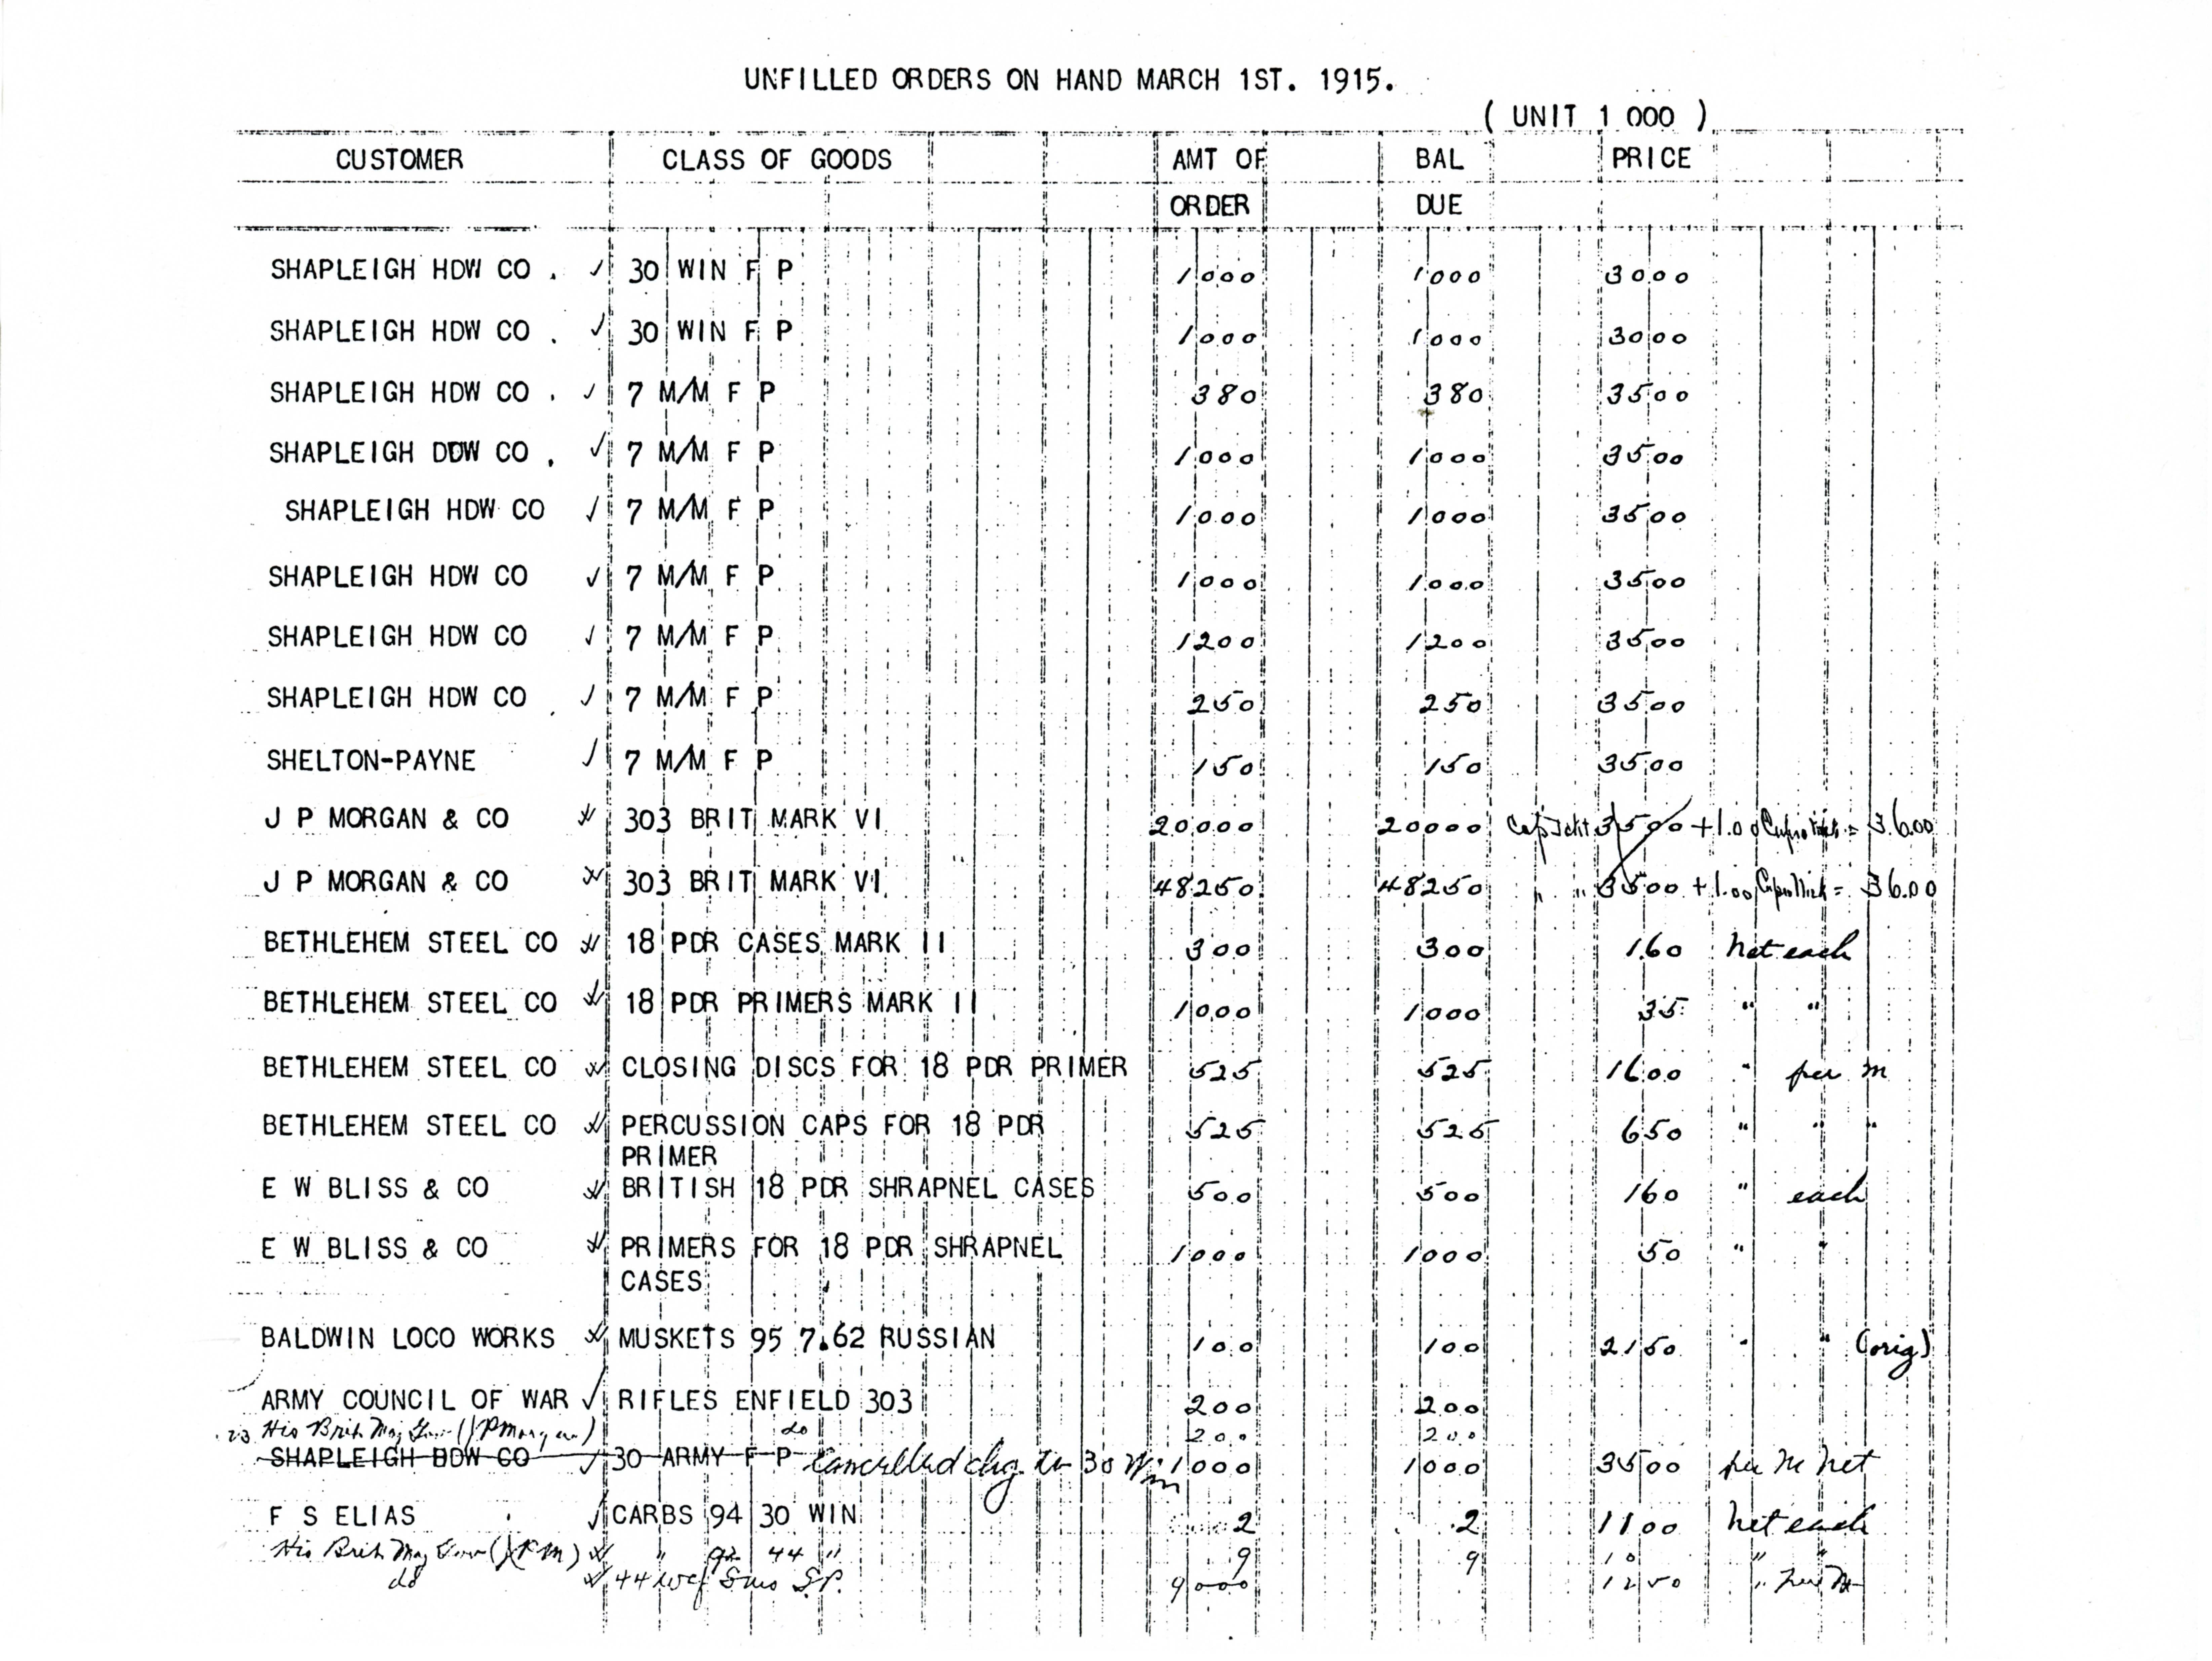 UNFILLED ORDERS ON HAND MARCH 1ST. 1915.
( UNIT 1 000 )
CUSTOMER CLASS OF GOODS AMT OF BAL PRICE
ORDER DUE
SHAPLEIGH HDW CO . ✓ 30 WIN F P 1000 1000 3000
SHAPLEIGH HDW CO . ✓ 30 WIN F P 1000 1000 3000
SHAPLEIGH HDW CO . ✓ 7 M/M F P 380 380 3500
SHAPLEIGH DDW CO . ✓ 7 M/M F P 1000 1000 3500
SHAPLEIGH HDW CO ✓ 7 M/M F P 1000 1000 3500
SHAPLEIGH HDW CO ✓ 7 M/M F P 1000 1000 3500
SHAPLEIGH HDW CO ✓ 7 M/M F P 1200 1200 3500
SHAPLEIGH HDW CO ✓ 7 M/M F P 250 250 3500
SHELTON-PAYNE ✓ 7 M/M F P 150 150 3500
J P MORGAN & CO 303 BRIT MARK VI 20000 20000 3500 + 1.00 = 36.00
J P MORGAN & CO 303 BRIT MARK VI 48250 48250 " " 3500 + 1.00 = 36.00
BETHLEHEM STEEL CO 18 PDR CASES MARK II 300 300 160 Net each
BETHLEHEM STEEL CO 18 PDR PRIMERS MARK II 1000 1000 35 " "
BETHLEHEM STEEL CO CLOSING DISCS FOR 18 PDR PRIMER 525 525 1600 " per M
BETHLEHEM STEEL CO PERCUSSION CAPS FOR 18 PDR 525 525 650 " " "
PRIMER
E W BLISS & CO BRITISH 18 PDR SHRAPNEL CASES 500 500 160 " each
E W BLISS & CO PRIMERS FOR 18 PDR SHRAPNEL 1000 1000 50 " "
CASES
BALDWIN LOCO WORKS MUSKETS 95 7.62 RUSSIAN 100 100 2150 " " (orig)
ARMY COUNCIL OF WAR ✓ RIFLES ENFIELD 303 200 200
His Brit Maj Gov (JP Morgan) do 200 200
SHAPLEIGH DDW CO ✓ 30 ARMY F P Cancelled chg. to 30 Win 1000 1000 3500 per M net
F S ELIAS ✓ CARBS 94 30 WIN 2 2 1100 Net each
His Brit Maj Gov (JPM) " 92 44 " 9 9 10 " "
do 44 Wcf Smo S.P. 9000 1250 " per M